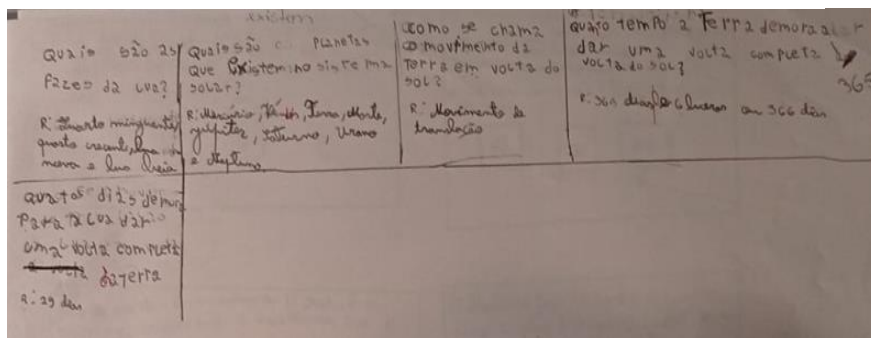 existem
Quais são as
fazes da lua?
R: Quarto minguante,
quarto crescente, lua
nova e lua cheia
Quais são os Planetas
que Existem no sistema
solar?
R: Mercúrio, Vénus, Terra, Marte,
Júpiter, Saturno, Urano
e Neptuno
como se chama
o movimento da
Terra em volta do
sol?
R: Movimento de
translação
Quato tempo a Terra demora a
dar uma volta completa à
volta do sol?
365
R: 365 dias e 6 horas ou 366 dias
Quatos dias demora
Para a lua dar
uma volta completa
da terra
R: 29 dias